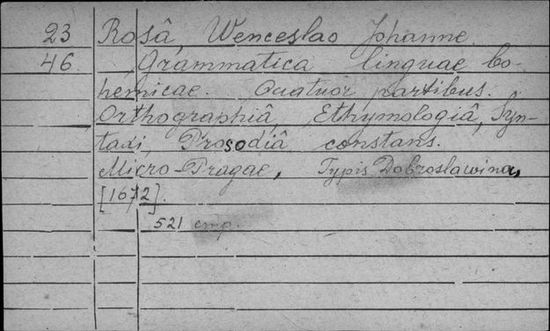 23 Rosâ Wenceslao Johanne
46. Grammatica linguae bo-
hemicae. Quatuor partibus.
Orthographiâ, Ethymologiâ, Syn-
taxi, Prosodiâ constans.
Micro-Pragae, Typis Dobroslawina,
[1672].
521 стр.